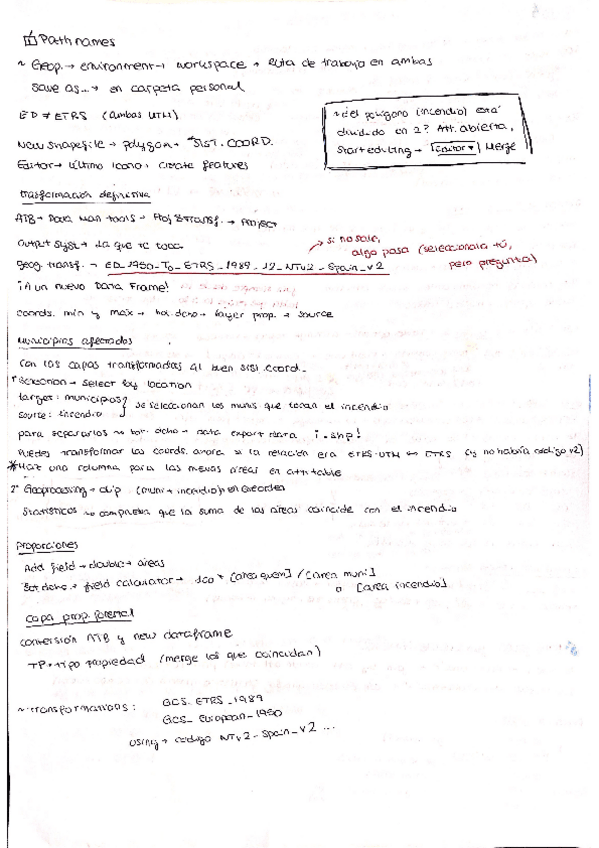 Path names
~ Geop. → environment → workspace → Ruta de trabajo en ambas
Save as... → en carpeta personal
ED ≠ ETRS (ambas UTM)
New shapefile → polygon + *SIST. COORD.
Editor → último icono: create features
~ del polígono (incendio) está
dividido en 2? Att. abierta,
Start editing → Editor ▾ | Merge
Trasformación definitiva
ATB → Data Man tools → Proj & Transf. → Project
Output syst → La que te toca
→ si no sale,
algo pasa (selecciónala tú,
pero pregunta)
geog. transf. → ED_1950_To_ETRS_1989_12_NTv2_Spain_v2
¡A un nuevo Data Frame!
coords. min y max → bot. dcho → layer prop. → source
Municipios afectados
Con las capas transformadas al buen sist. coord.
1º Selection → select by location
target: municipios
source: incendio } se seleccionan los munis que tocan el incendio
para separarlos → bot. dcho → data export data ¡.shp!
Puedes transformar las coords. ahora si la relación era ETRS-UTM ↔ ETRS (y no habría código v2)
*Haz una columna para las nuevas áreas en att. table
2º Geoprocessing → clip (muni + incendio) en Geordea
Statistics → comprueba que la suma de las áreas coincide con el incendio
Proporciones
Add field → double → areas
Bot dcho. → field calculator → 100 * [area quem] / [area muni]
o [area incendio]
Capa prop. forestal
conversión ATB y new dataframe
TP = tipo propiedad (merge los que coincidan)
~ transformations: GCS_ETRS_1989
GCS_European_1950
using → código NTv2_Spain_v2 ...